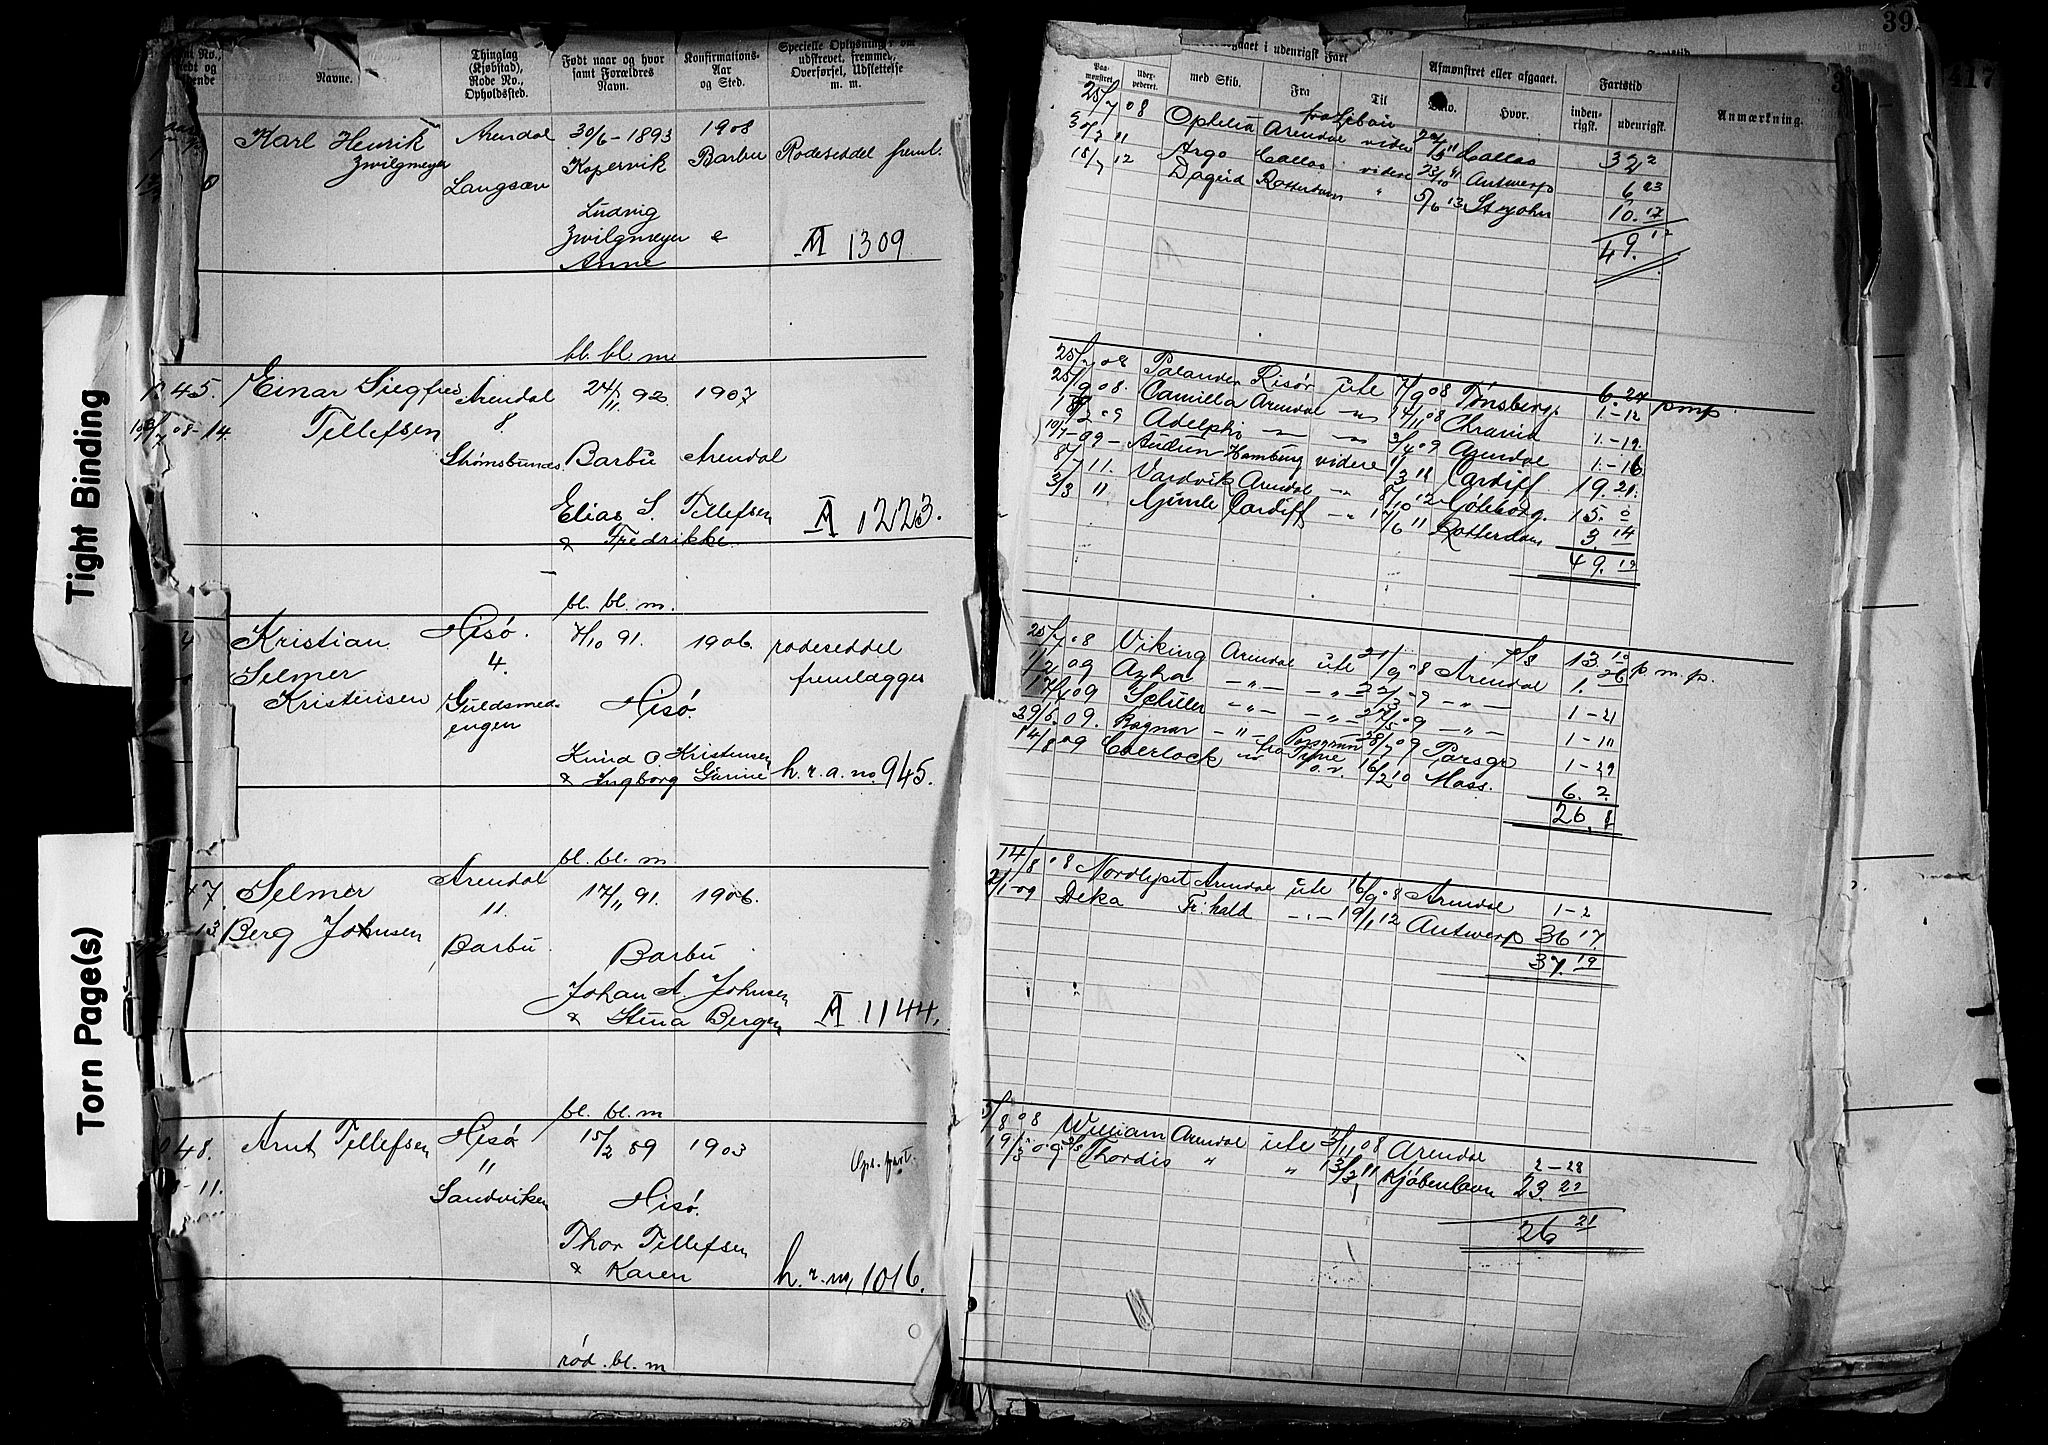 Tight Binding
Torn Page(s)
Navne.
Thinglag (Kjøbstad), Rode No., Opholdssted.
Født naar og hvor samt Forældres Navn.
Konfirmations-Aar og Sted.
Specielle Oplysninger om udskrevet, fremmø, Overførsel, Udslettelse m. m.
Karl Henrik Arendal 30/6-1893 1908
Zwilgmeyer Kopervik Barbu Rodeseddel freml.
Langsæv
Ludvig
Zwilgmeyer &
Anne A 1309
bl. bl. m
45. Einar Siegfred Arendal 24/11 92 1907
08-14. Tellefsen 8.
Strømsbunes Barbu Arendal
Elias S. Tellefsen A 1223.
& Fredrikke
bl. bl. m.
Kristian Hisø. 7/10 91. 1906 rodeseddel
Selmer 4. fremlægges
Kristensen Guldsmed-
engen Hisø.
Knud O. Kristensen
& Ingborg Gurine h.r.a.no. 945.
bl. bl. m
7. Selmer Arendal 17/11 91. 1906.
13 Berg Johnsen 11.
Barbu Barbu
Johan A. Johnsen
& Stina Bergen A 1144.
bl. bl. m
48. Arnt Tellefsen Hisø 15/2 89 1903
11
-11. Sandviken Hisø.
Thor Tellefsen
& Karen h.r.no, 1016.
rød. bl. m
39
417
i udenrigsk Fart
Paa-mønstret
Udex-pederet.
med Skib.
Fra
Til
Afmønstret eller afgaaet.
Hvor.
Fartstid
inden-rigsk.
udenrigsk.
Anmærkning.
25/7 08 Ophelia Arendal videre Callao 32 2
11 Argo Callao videre 23/10 11 Antwerp 6 23
15/7 12 Dagrid Rotterdam " 5/6 13 St. John 10. 17
49. 12
25/7 08 Palander Risør ute 7/9 08 Tønsberg 6. 27 pmp.
25/9 08. Camilla Arendal 14/11 08 1-12
2 09 Adelphi 3/4 09 Arendal 1.-19.
10/7-09- Audun Hamburg videre 11/3 11 Cardiff 1.-16
8/7 11. Vardvik Arendal 8/10 12 Göteborg. 19. 21.
3/3 11 Gjimle Cardiff 17/6 11 Rotterdam 15. 0
3. 14
49. 19
25/7 08 Viking Arendal ute 21/9 08 Arendal 13. 10 p. m. p.
09 Azha - " - - " - - " - 1. 26
17/4 09 Schiller - " - - " - 09 - " - 1-21
29/5. 09. Ragnar - " - Porsgrund 28/7 09 Porsgr 1-11
14/8 09 Coverlock fra Tyne 16/2 10 Moss. 1-29
6. 2.
26. 8
14/8 08 Nordlyset Arendal ute 16/9 08 Arendal 1-2
2/1-09 Deka Fr.hald 19/1 12 Antwerp 36 17
37. 19
5/8 08 William Arendal ute 3/11 08 Arendal 2-28
19/3 09 Thordis " " 11 Kjøbenhavn 23. 23
26 21